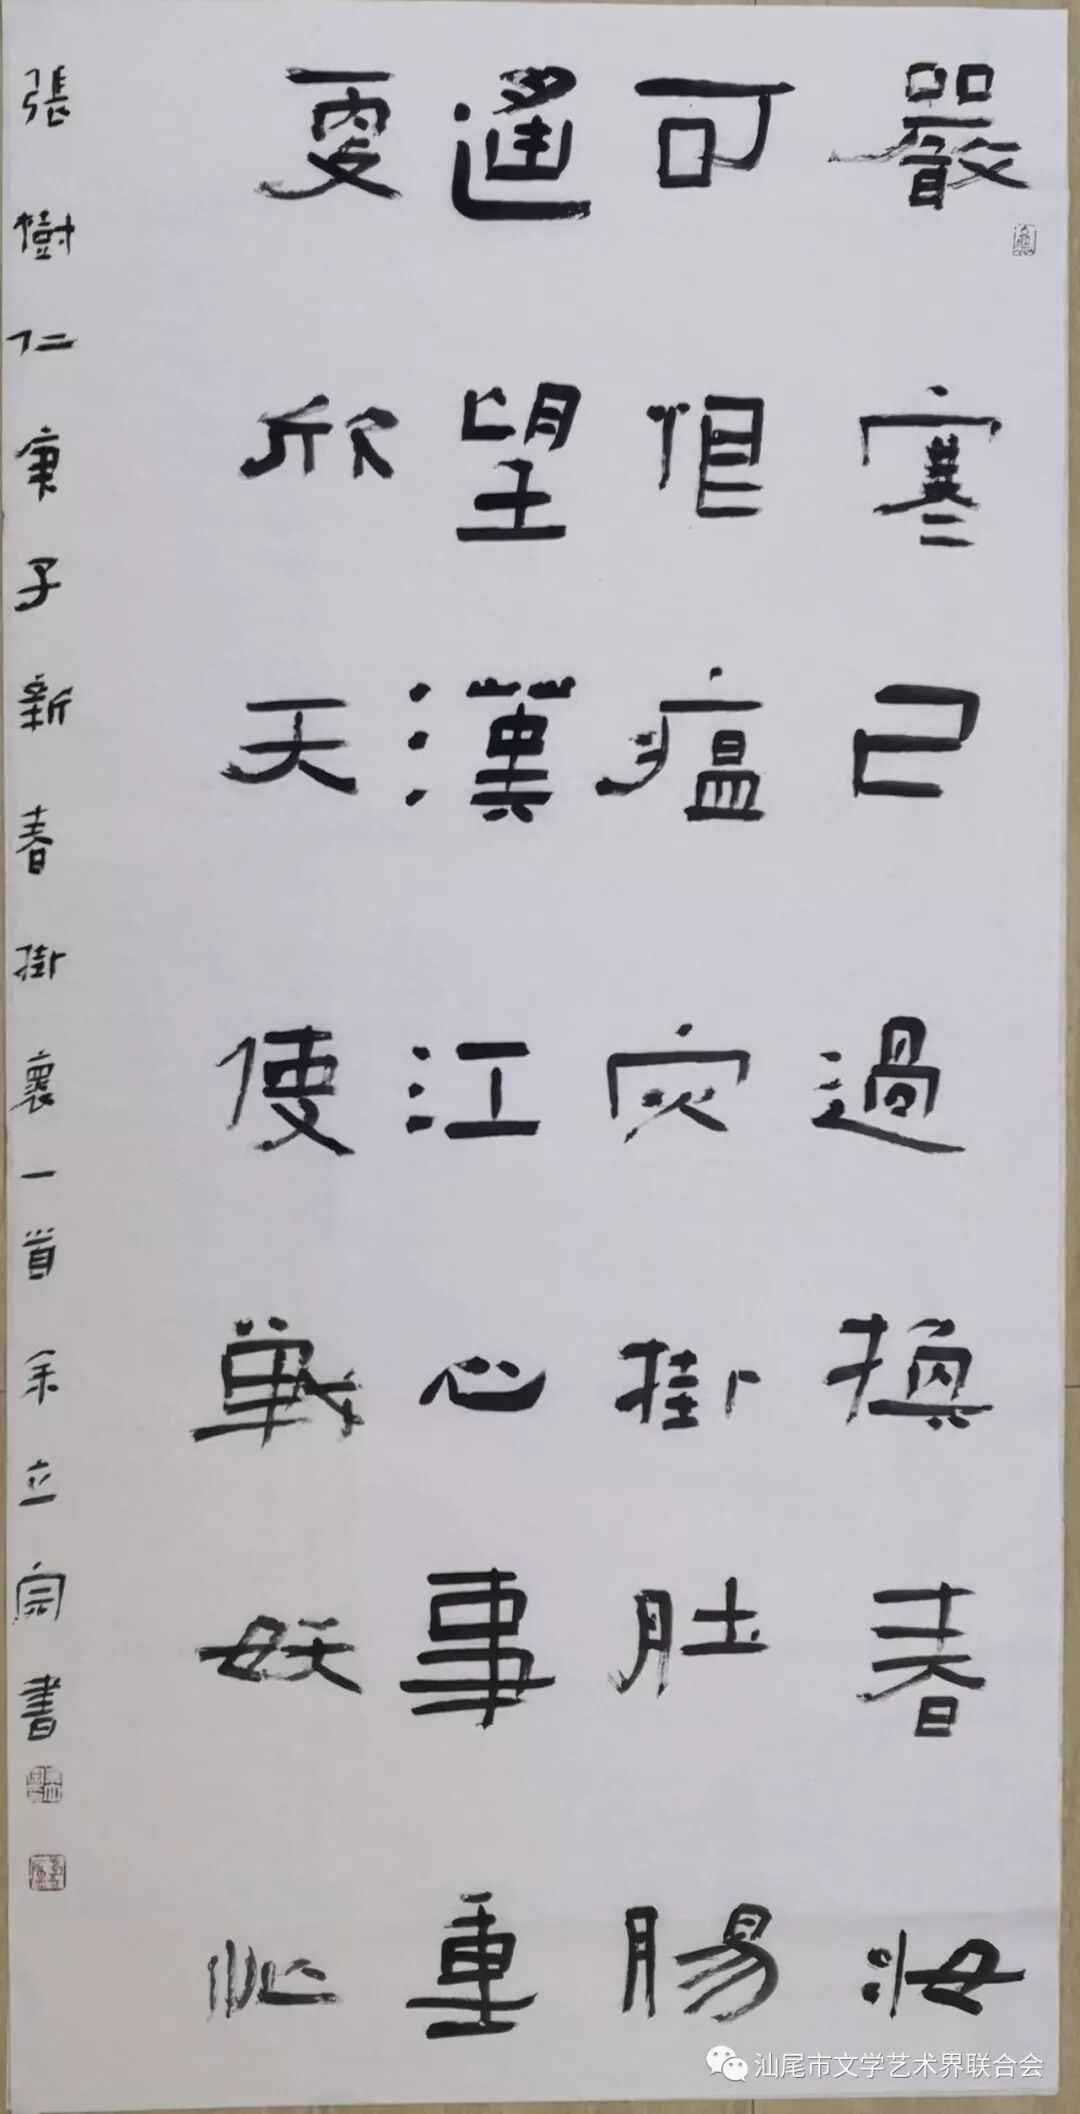 嚴寒已過換春妝
可恨瘟灾掛肚腸
遙望漢江心事重
更欣天使戰妖忙
張樹仁庚子新春掛褱一首余立宗書
汕尾市文学艺术界联合会